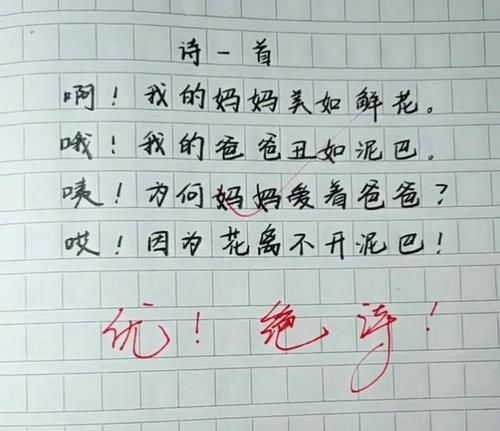 诗一首
啊！我的妈妈美如鲜花。
哦！我的爸爸丑如泥巴。
咦！为何妈妈爱着爸爸？
哎！因为花离不开泥巴！
优！绝诗！